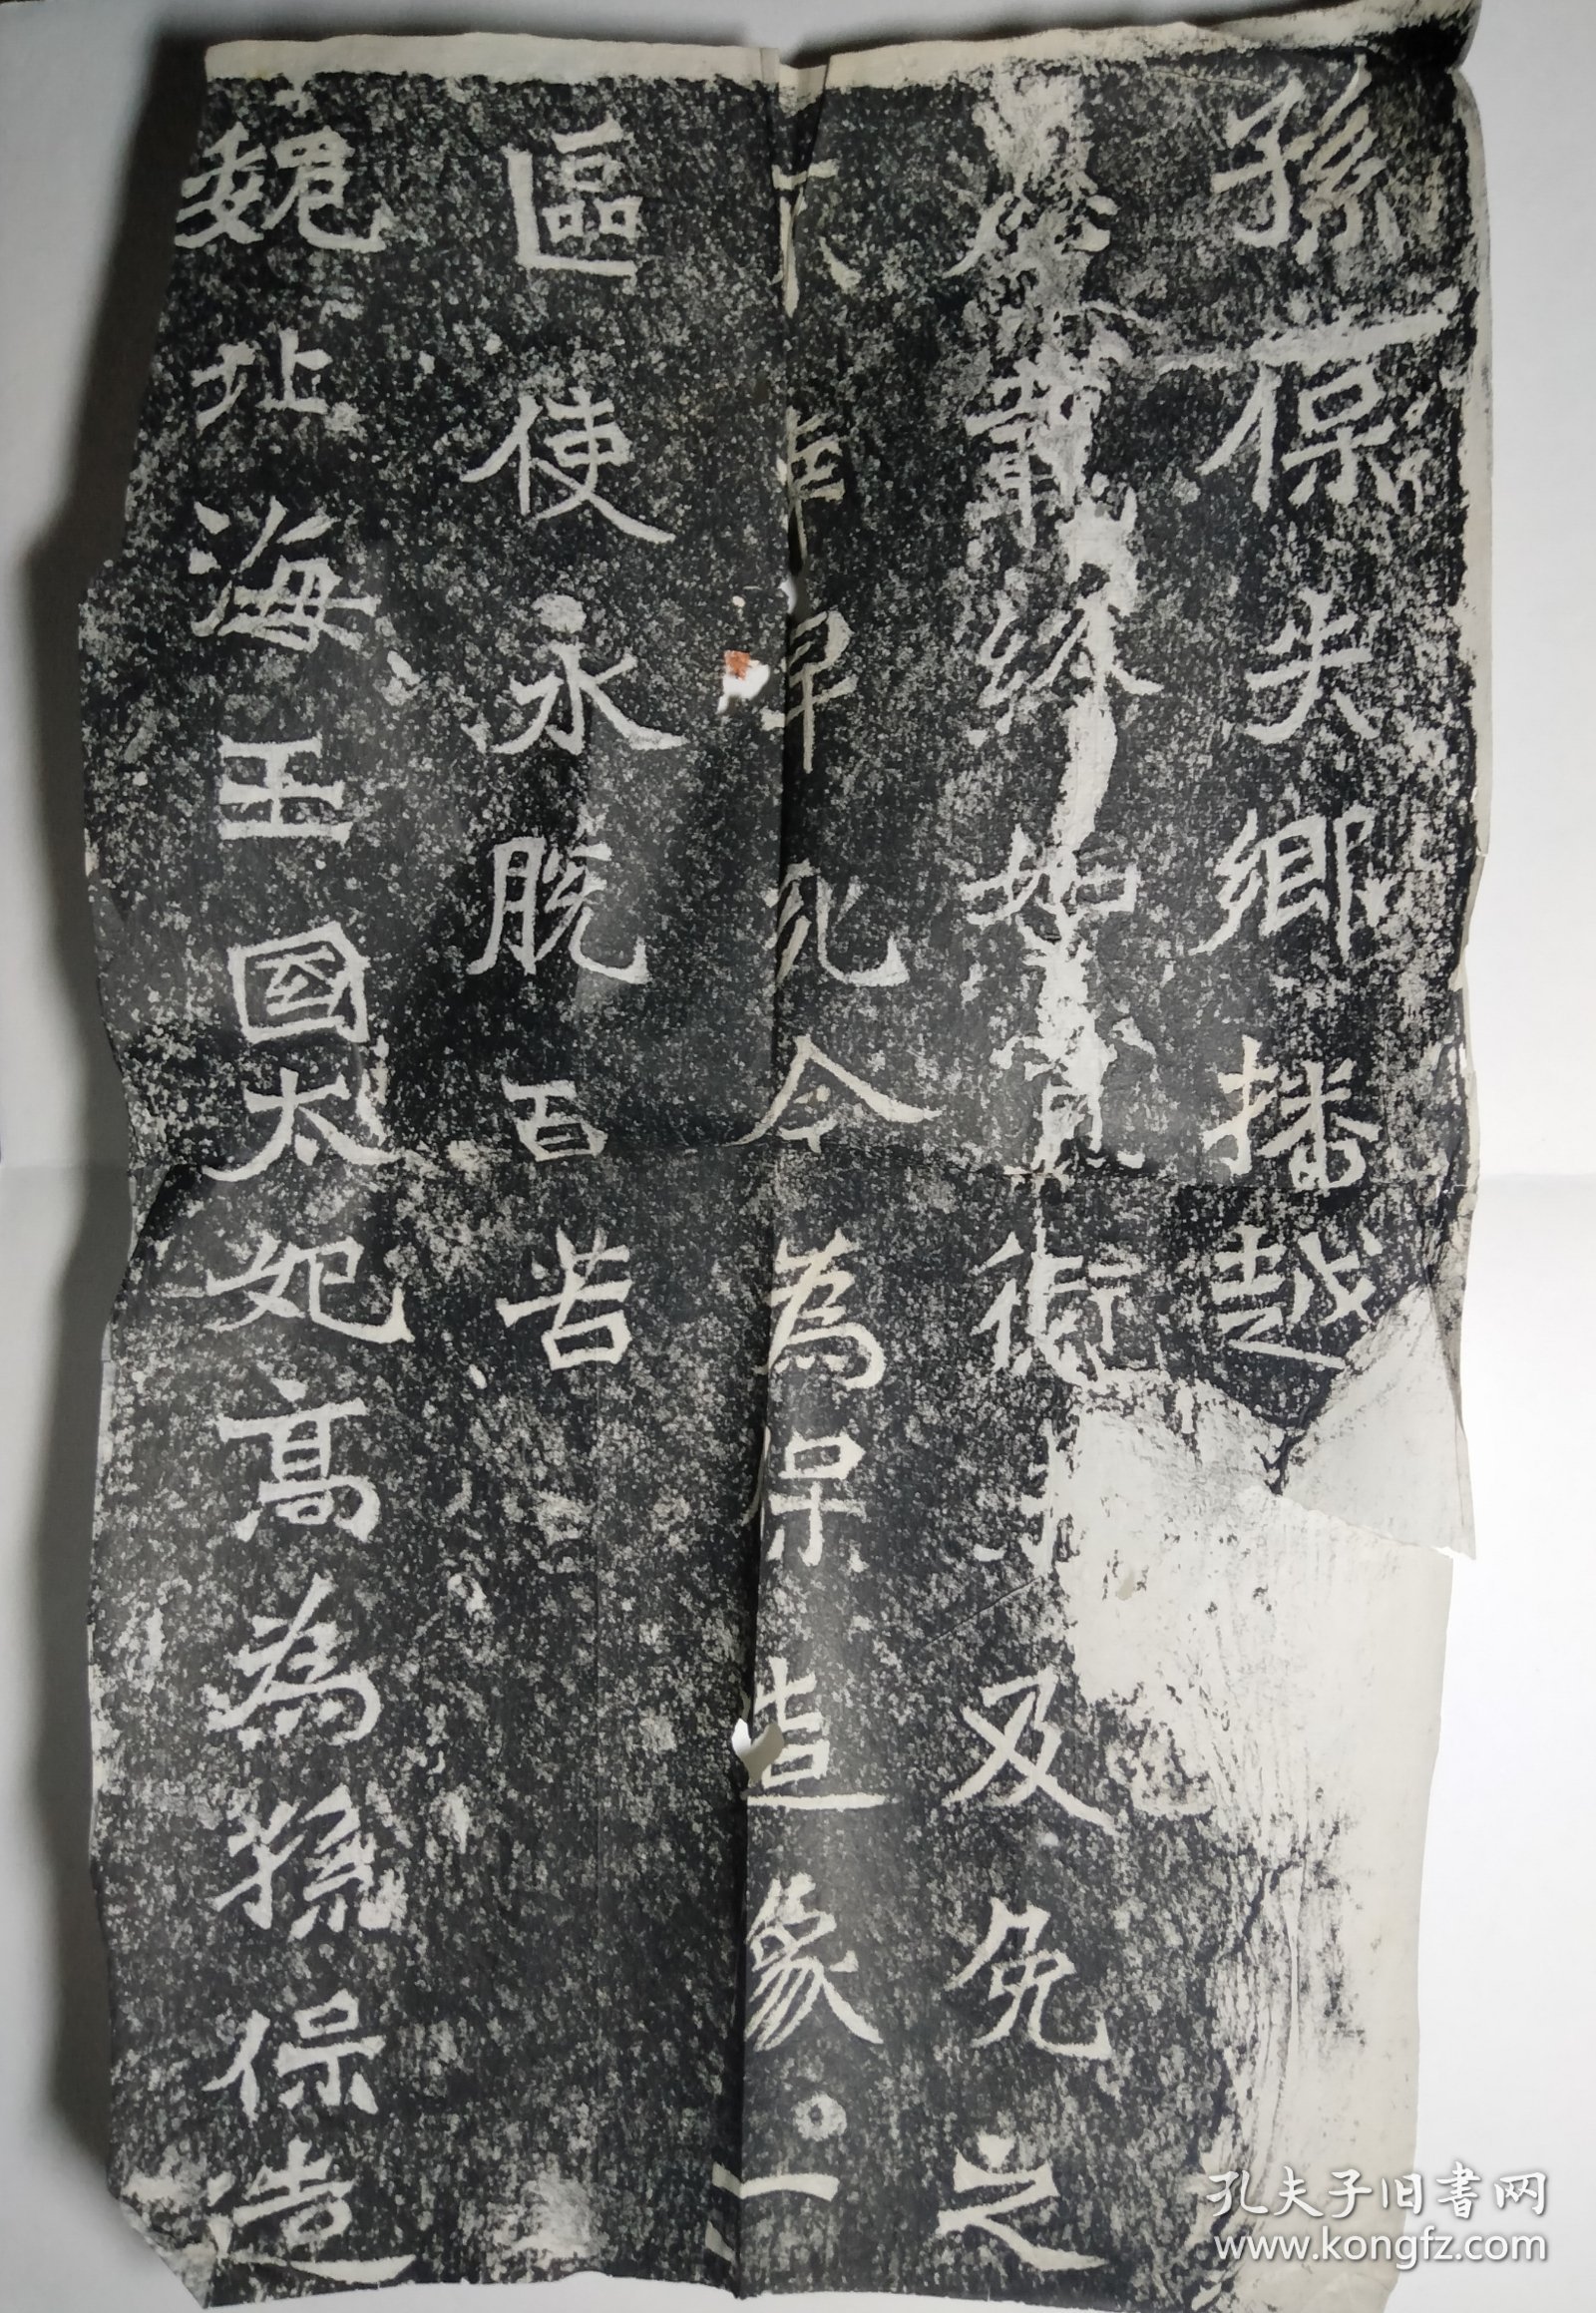 孫保失鄉播越
終始衛及免之
不幸早今為保造象一
區使永脫百苦
魏北海王國太妃高為孫保造
孔夫子旧书网
www.kongfz.com